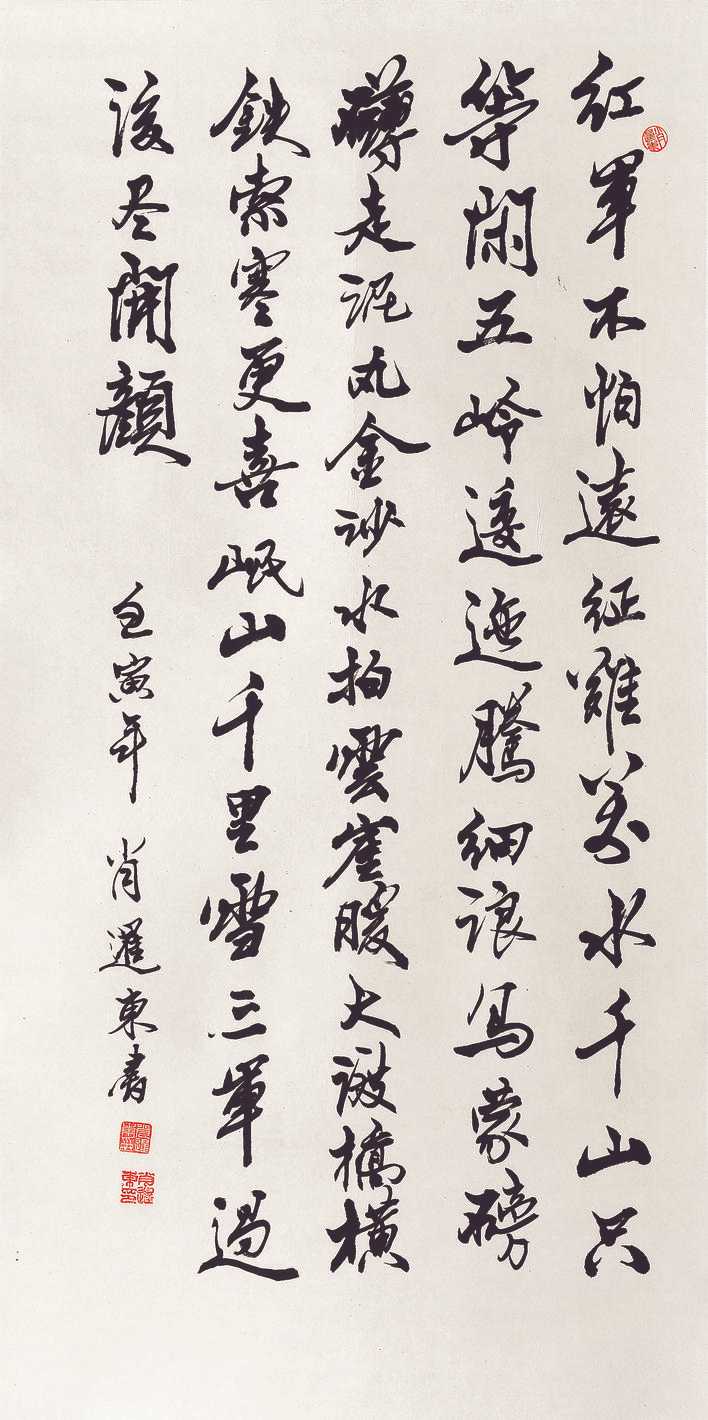 紅軍不怕遠征難萬水千山只
等閑五岭逶迤騰細浪烏蒙磅
礴走泥丸金沙水拍雲崖暖大渡橋横
鉄索寒更喜岷山千里雪三軍過
後尽開顔
壬寅年 肖暹東書